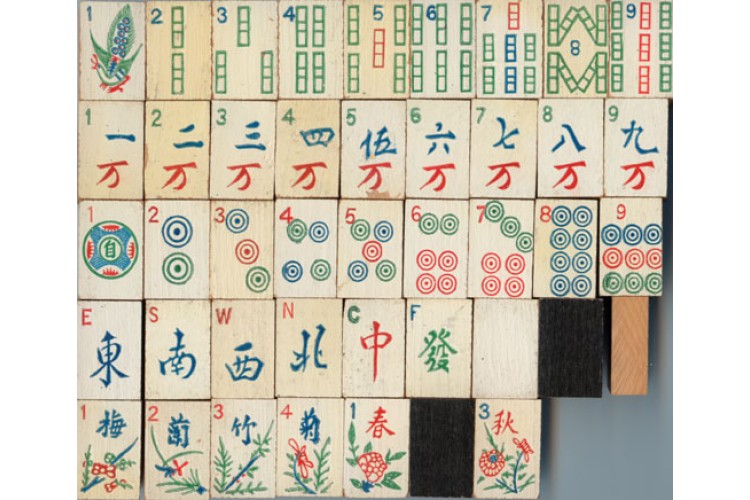 1 2 3 4 5 6 7 8 9
1 2 3 4 5 6 7 8 9
一 二 三 四 伍 六 七 八 九
万 万 万 万 万 万 万 万 万
1 2 3 4 5 6 7 8 9
自
E S W N C F
東 南 西 北 中 發
1 2 3 4 1 3
梅 竹 菊 春 秋